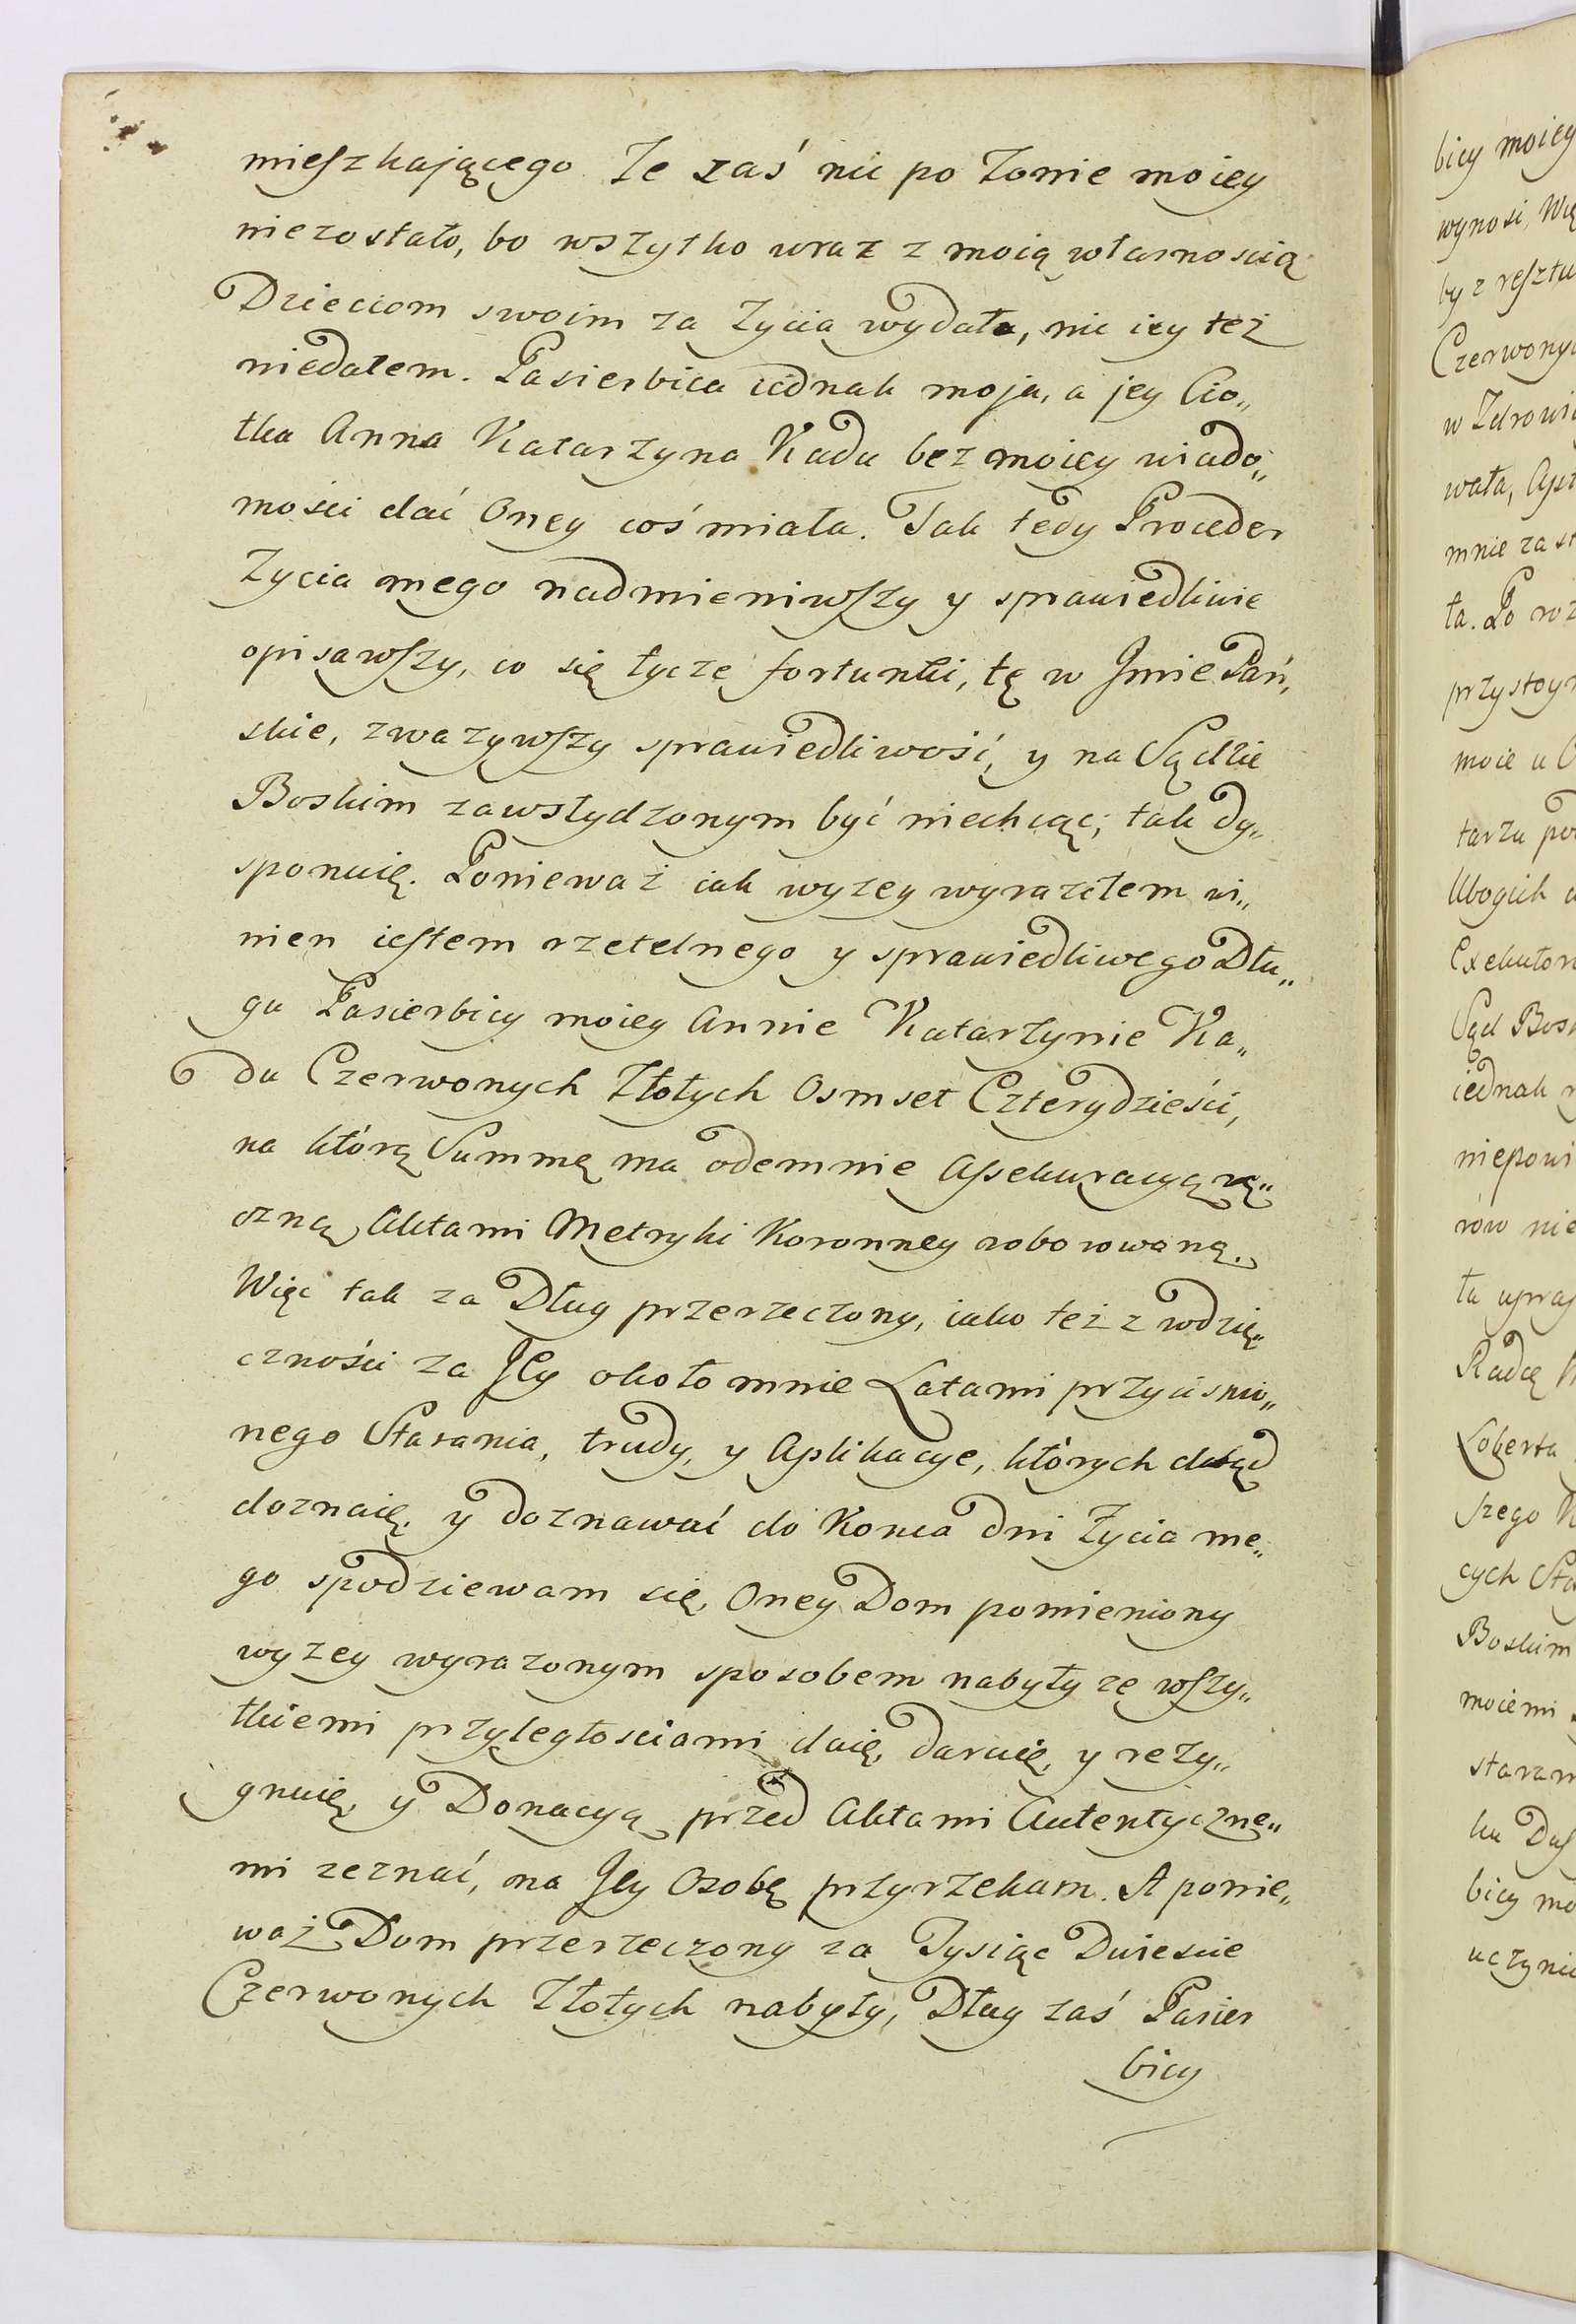 mieſzkającego Że zaś nic po Żonie moiey
niezostało, bo wszytko wraz z moią własnoscią
Dzieciom swoim za Życia wydała, nic iey też
niedałem. Pasierbica iednak moja, a jey Cio„
tka Anna Katarzyna Kada bez moiey wiado„
mości dać Oney coś miała. Tak tedy Proceder
Życia mego nadmieniwſzy y sprawiedliwie
opisawſzy, co się tycze fortunki, tę w Jmie Pań„
skie, zwazywſzy sprawiedliwość, y na Sądzie
Boskim zawstydzonym być niechcąc, tak dy„
sponuię. Ponieważ iak wyzey wyraziłem wi„
nien ieſtem rzetelnego y sprawiedliwego Dłu„
gu Pasierbicy moiey Annie Katarzynie Ka„
du Czerwonych Złotych Osmset Czterydzieści,
na którą Summę ma odemnie Aſsekuracyą rę„
czną Aktami Metryki Koronney roborowaną.
Więc tak za Dług przerzeczony, iako też z wdzię„
czności za Jey około mnie Latami przyciśnio„
nego Starania, trudy, y Aplikacye, których dotąd
doznaię, y doznawać do Konca dni Życia me„
go spodziewam się, Oney Dom pomieniony
wyzey wyrazonym sposobem nabyty ze wſzy„
tkiemi przyległosciami daię, daruię, y rezy„
gnuię, y Donacyą przed Aktami Autentyczne„
mi zeznać, na Jey Osobę przyrzekam. A ponie„
waż Dom przerzeczony za Tysiąc Dwiescie
Czerwonych Złotych nabyty, Dług zaś Pasier
bicy
bicy moiey
wynosi, Wię
by z reſztu
Czerwony
w Zdrowi
wała,
mnie za
ła. Po roz
przystoy
moie u
tarzu
Ubogich
Exekutor
Sąd Bos
iednak
niepowi
rów nie
ta upraſ
Radcę
Loberta
szego
cych Sta
Boskim
moiemi
staran
ku Duſ
bicy mo
uczynic